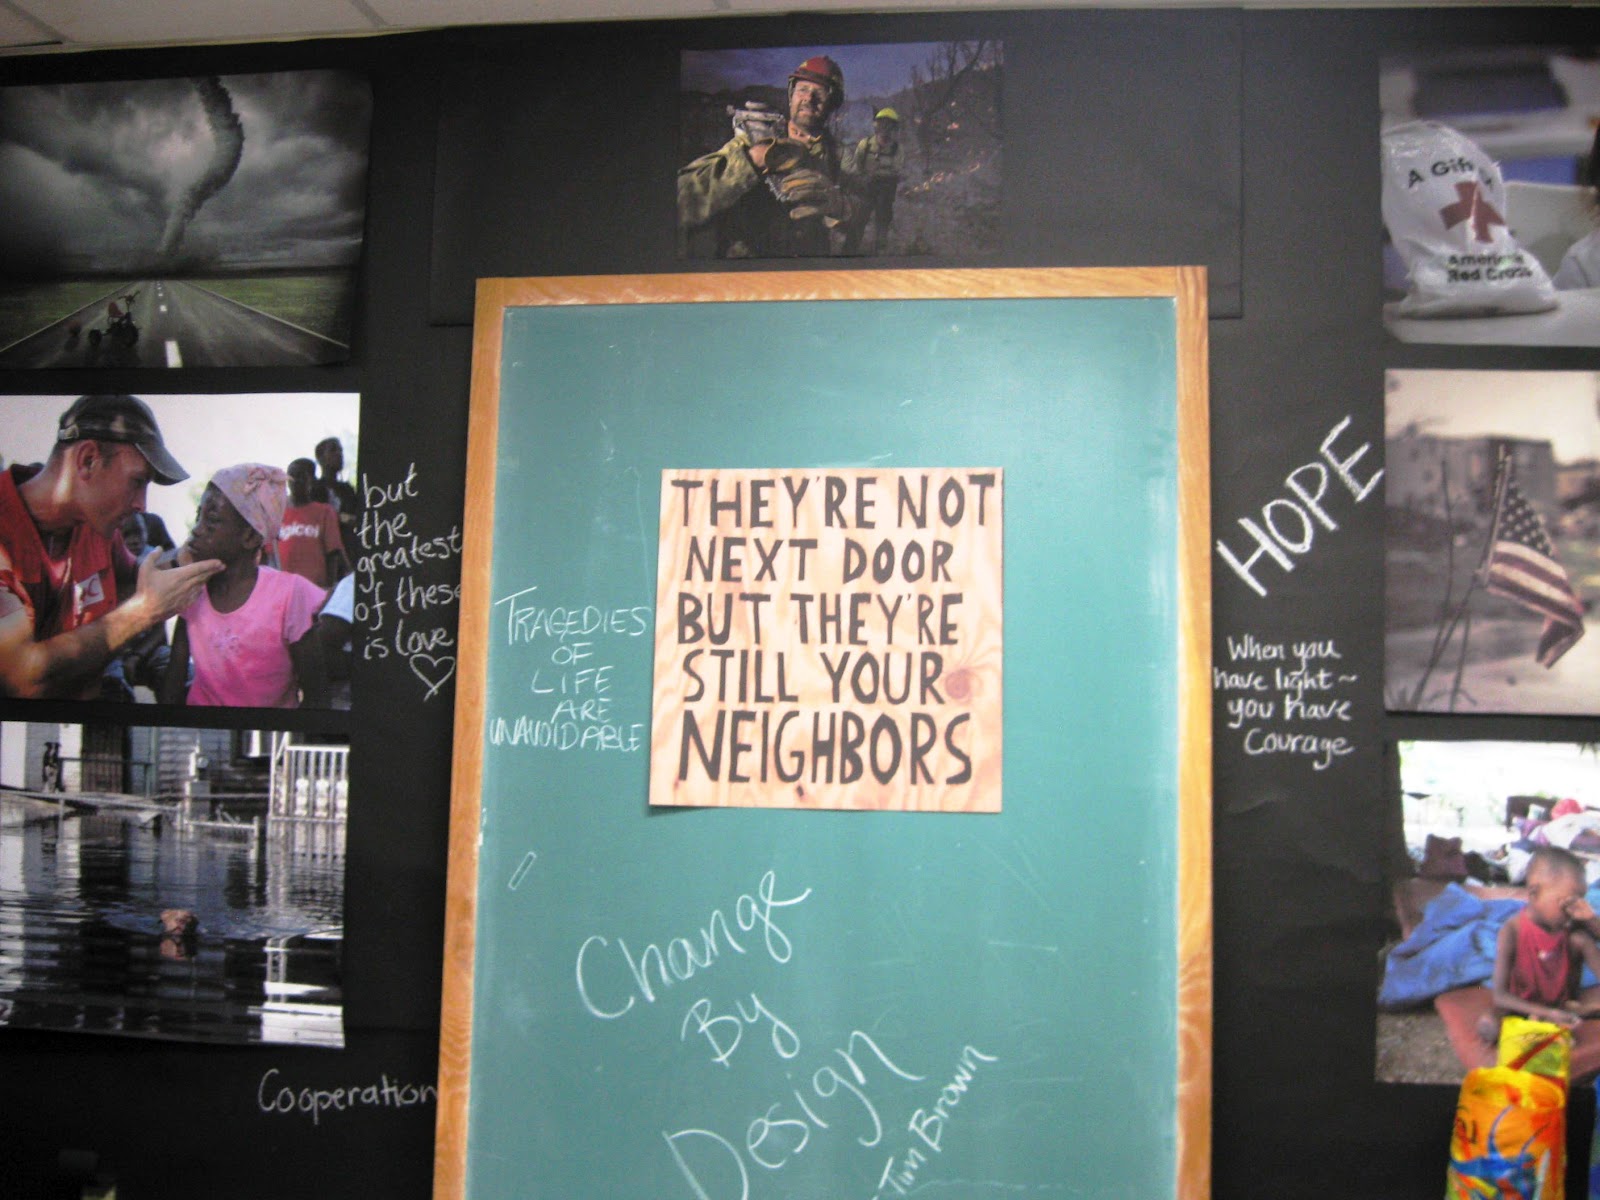 A Gift
American
Red Cross
but
the
greatest
of these
is love
HOPE
TRAGEDIES
OF
LIFE
ARE
UNAVOIDABLE
THEY'RE NOT
NEXT DOOR
BUT THEY'RE
STILL YOUR
NEIGHBORS
When you
have light~
you have
Courage
Change
By
Design
Tim Brown
Cooperation